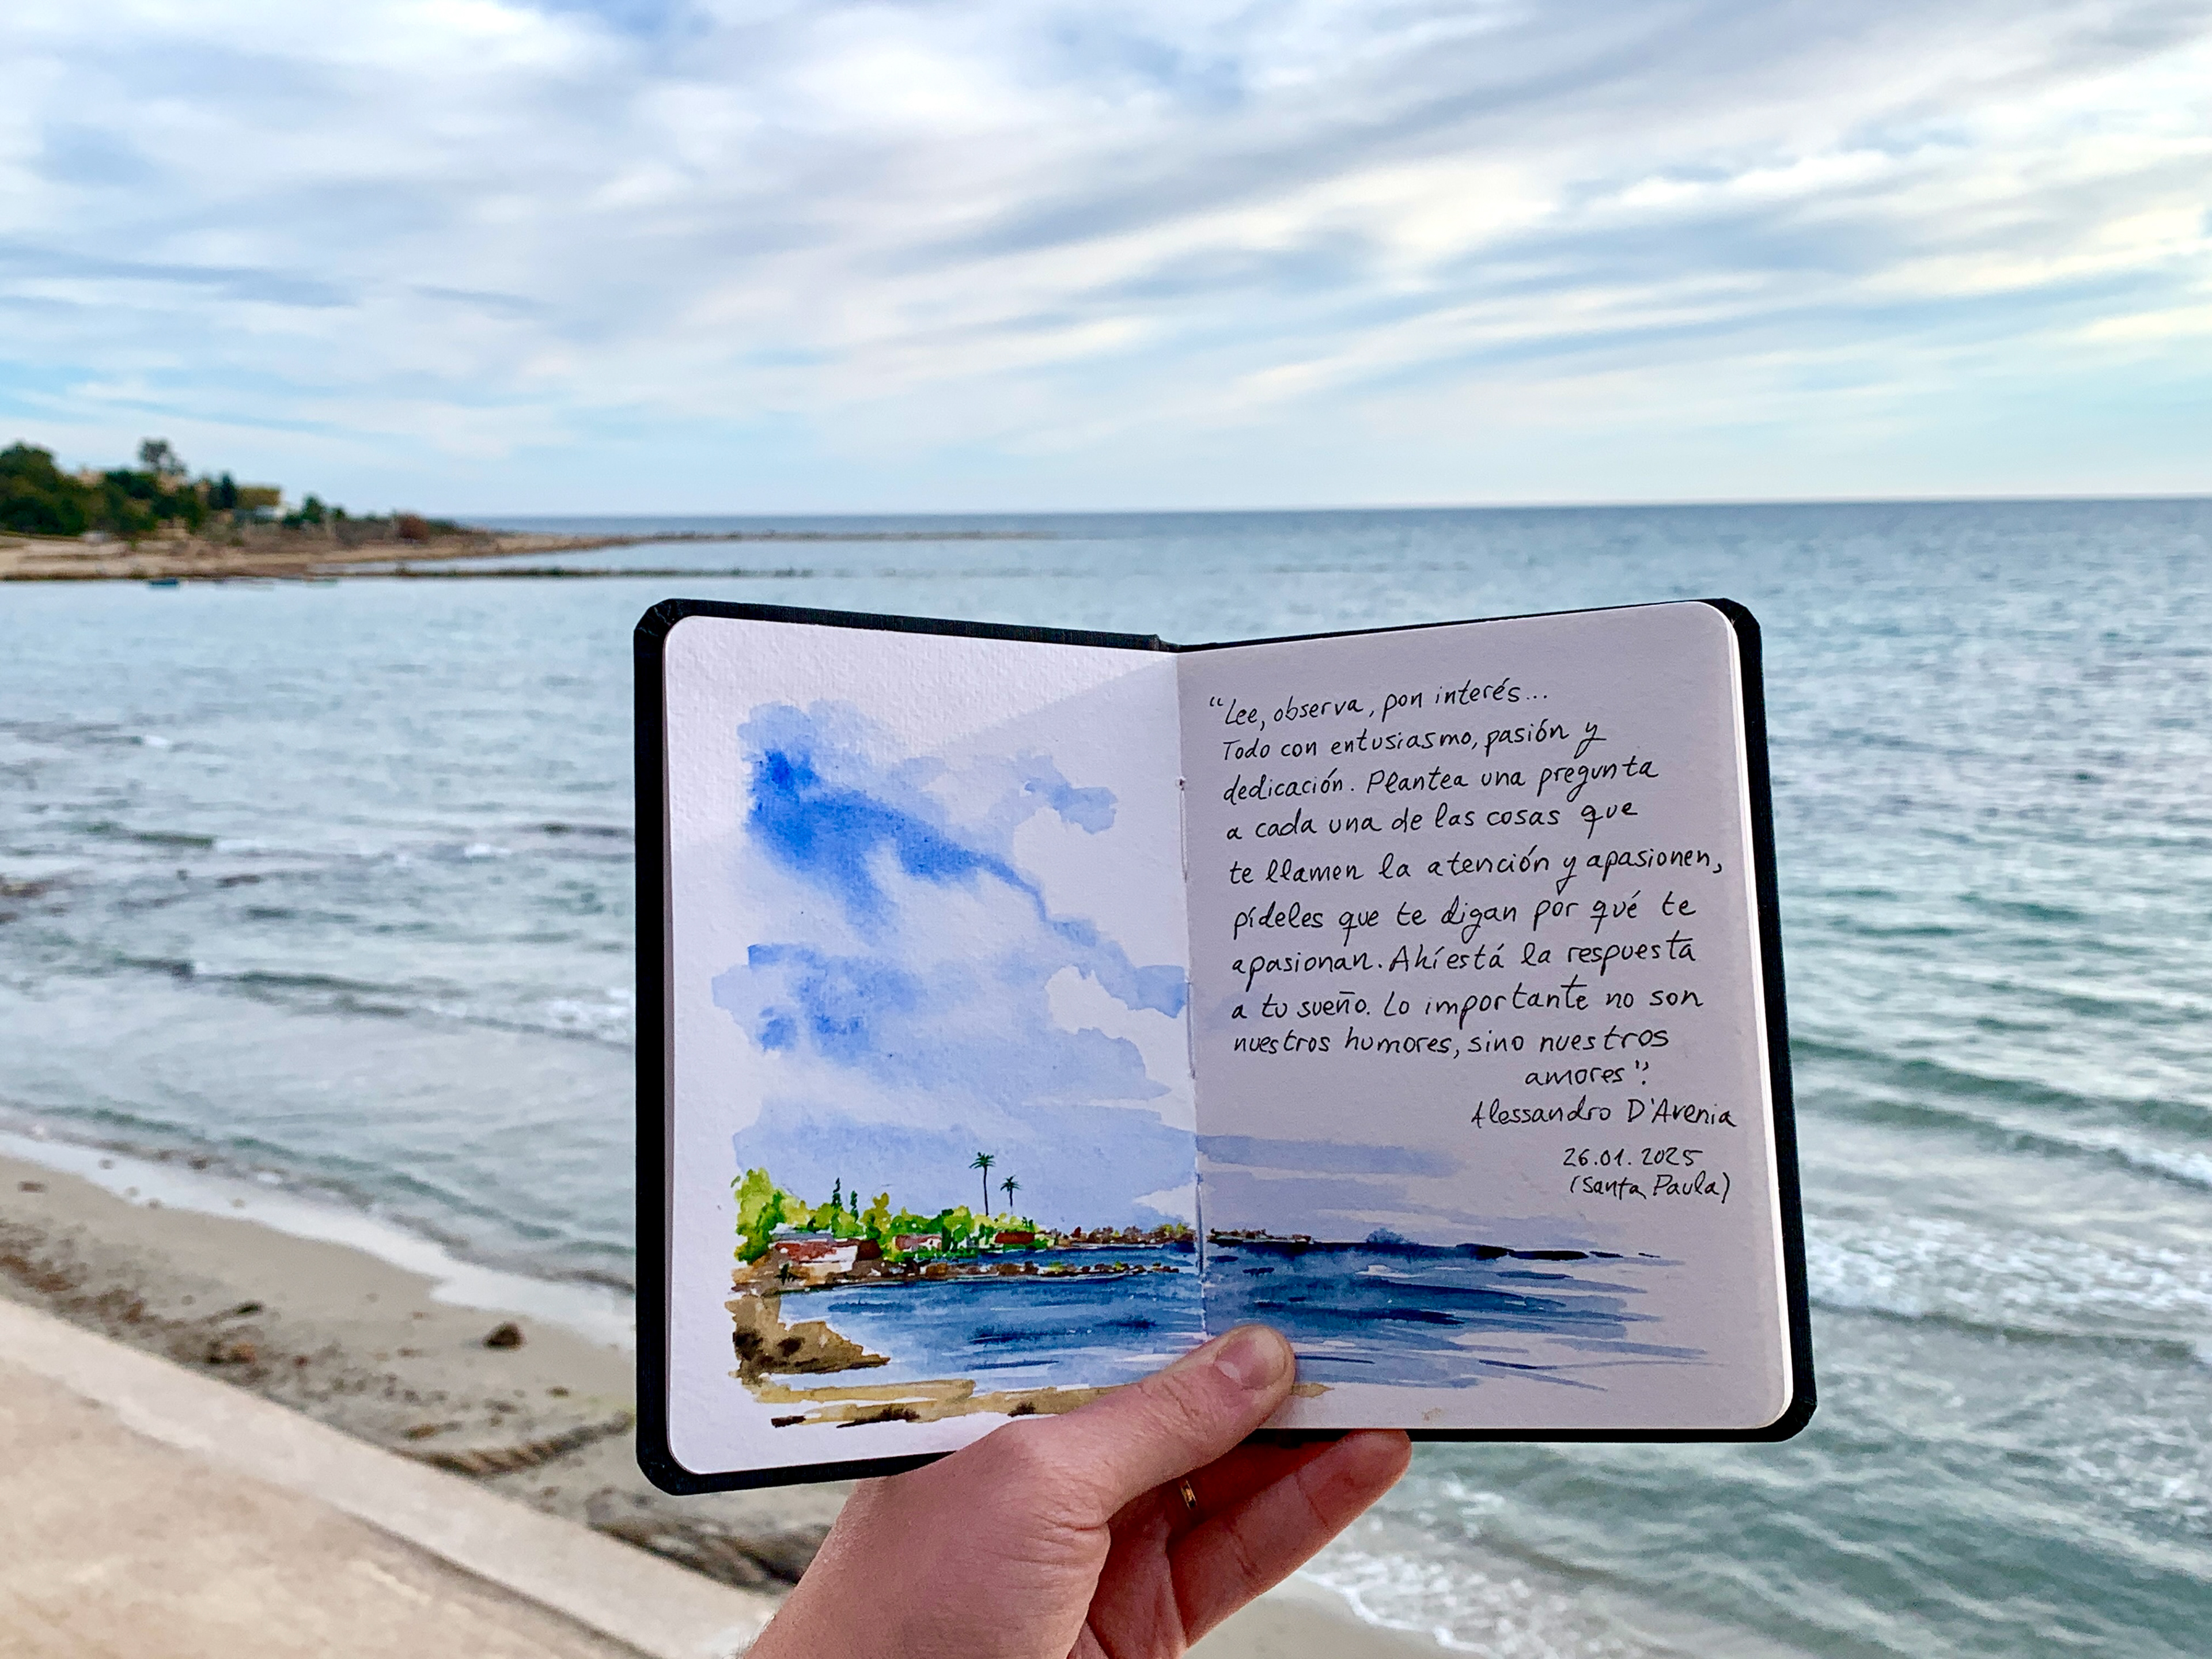 “Lee, observa, pon interés...
Todo con entusiasmo, pasión y
dedicación. Plantea una pregunta
a cada una de las cosas que
te llamen la atención y apasionen,
pídeles que te digan por qué te
apasionan. Ahí está la respuesta
a tu sueño. Lo importante no son
nuestros humores, sino nuestros
amores”.
Alessandro D'Avenia
26.01.2025
(Santa Paula)